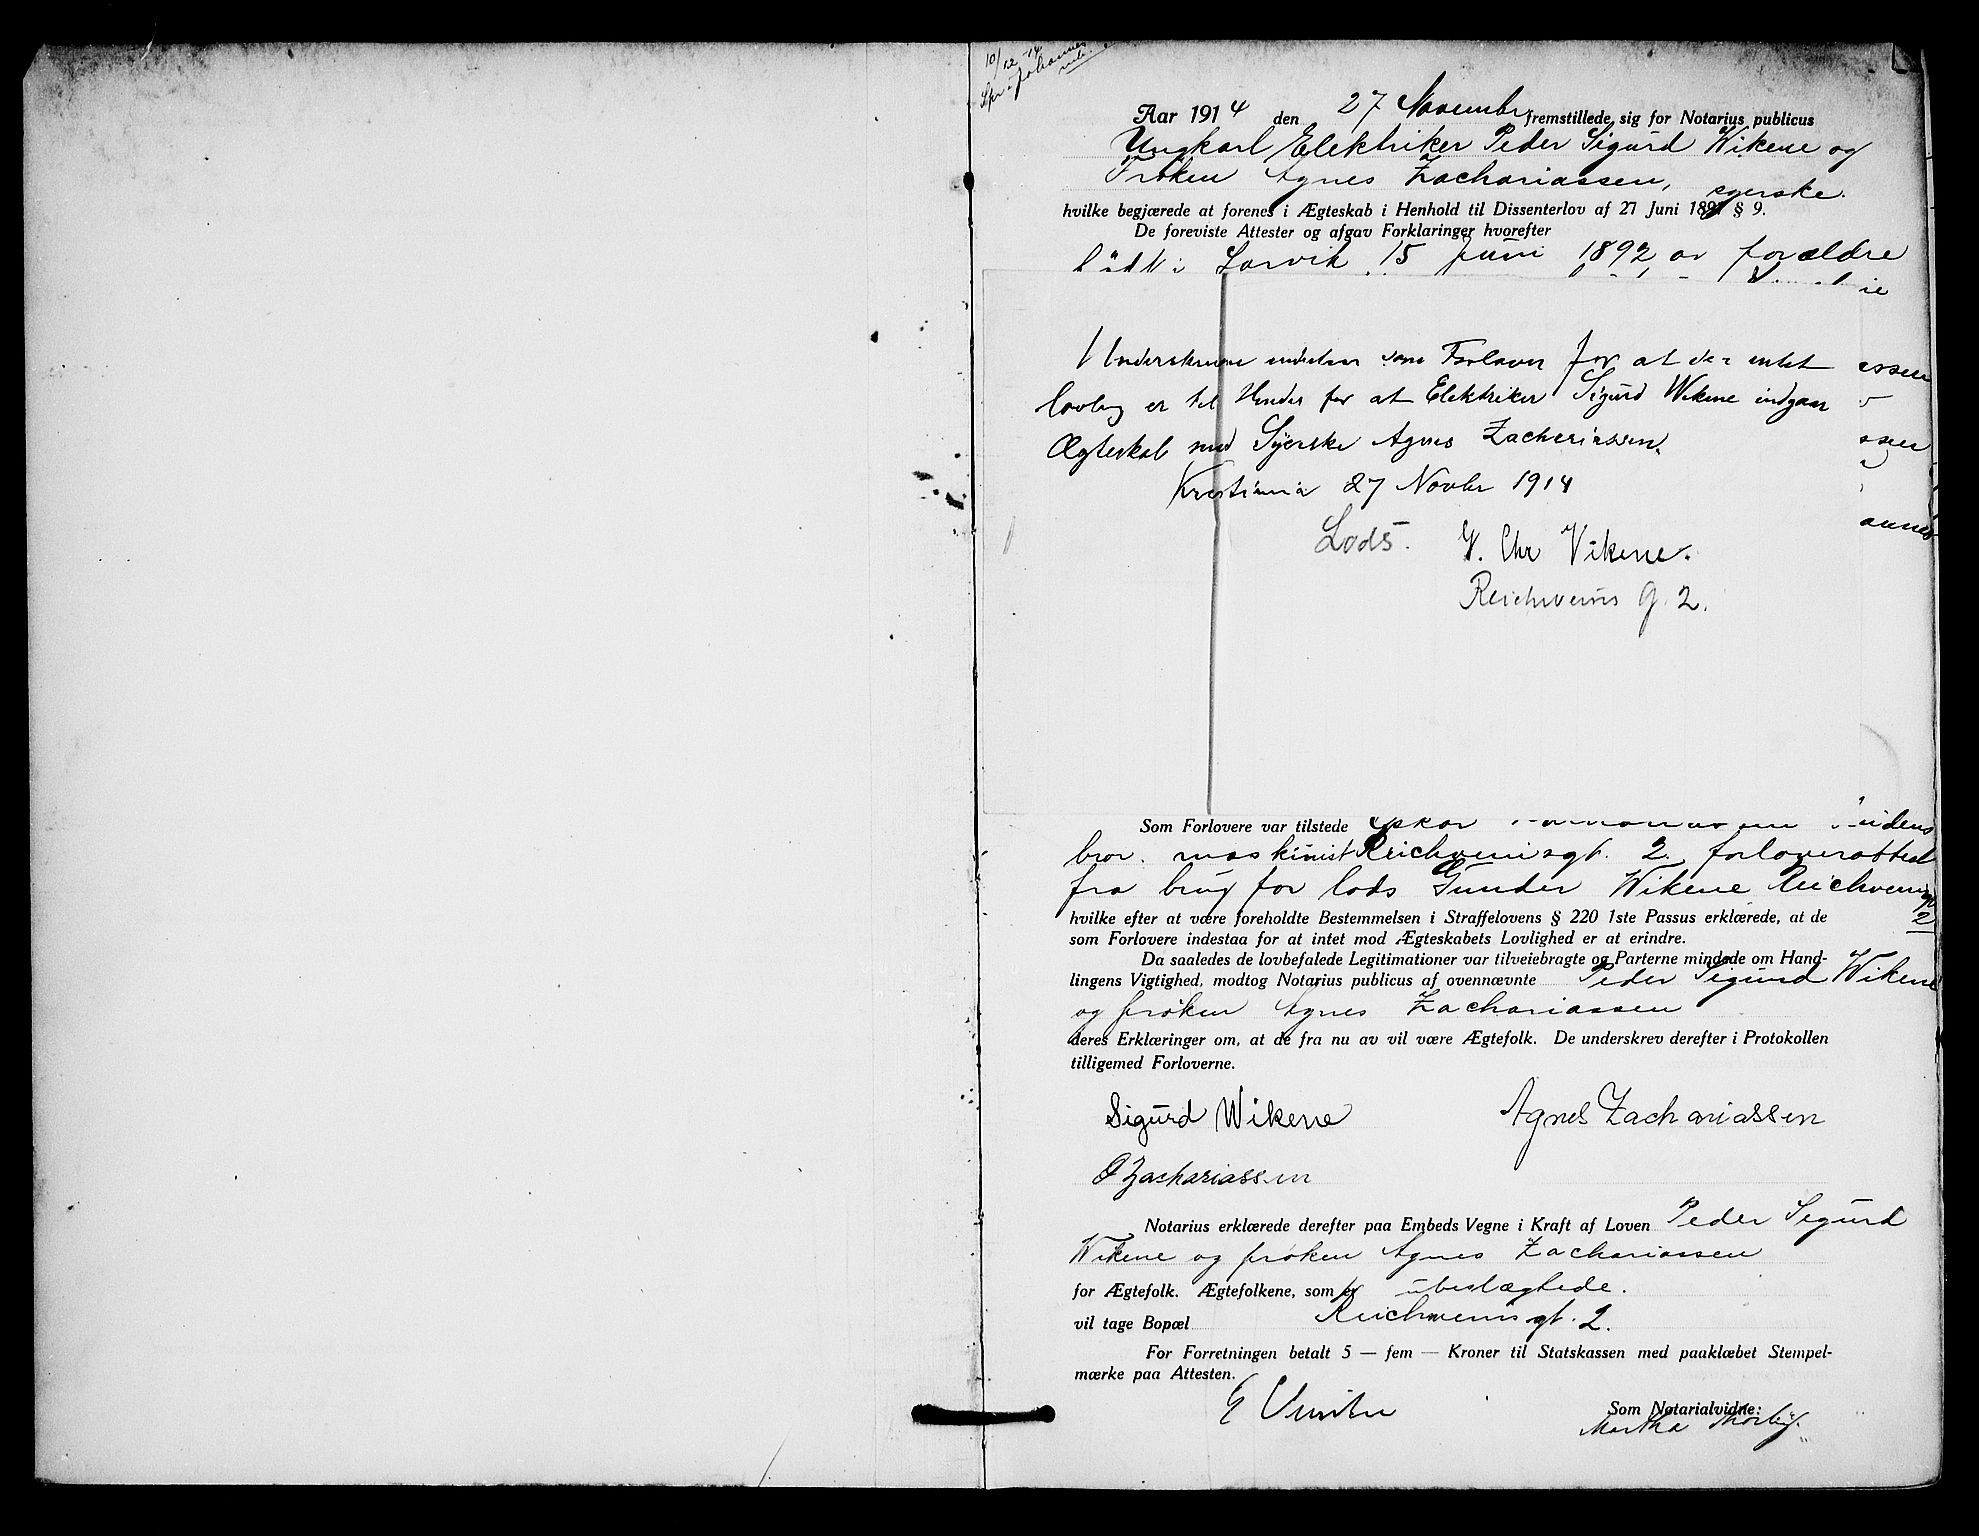 10/12 - 14
Aar 1914 den 27 Novembr fremstillede sig for Notarius publicus
Ungkarl Elektriker Peder Sigurd Wikene og
Frøken Agnes Zachariassen, syerske.
hvilke begjærede at forenes i Ægteskab i Henhold til Dissenterlov af 27 Juni 1891 § 9.
De foreviste Attester og afgav Forklaringer hvorefter
født i Larvik 15 Juni 1892 av forældre
ie
Underskrevne indestaar som Forlover for at der intet
lovlig er til Hinder for at Elektriker Sigurd Wikene indgaar
Ægteskab med Syerske Agnes Zachariassen.
Kristiania 27 Novbr 1914
Lods. G. Chr Vikene.
Reichweins g. 2.
Som Forlovere var tilstede Oskar
bror. maskinist Reichweinsgt. 2. forloverattest
fra brug for lods Gunder Wikene Reichweinsgt 2
hvilke efter at være foreholdte Bestemmelsen i Straffelovens § 220 1ste Passus erklærede, at de
som Forlovere indestaa for at intet mod Ægteskabets Lovlighed er at erindre.
Da saaledes de lovbefalede Legitimationer var tilveiebragte og Parterne mindede om Hand-
lingens Vigtighed, modtog Notarius publicus af ovennævnte Peder Sigurd Wikene
og frøken Agnes Zachariassen
deres Erklæringer om, at de fra nu av vil være Ægtefolk. De underskrev derefter i Protokollen
tilligemed Forloverne.
Sigurd Wikene Agnes Zachariassen
O Zachariassen
Notarius erklærede derefter paa Embeds Vegne i Kraft af Loven Peder Sigurd
Wikene og frøken Agnes Zachariassen
for Ægtefolk. Ægtefolkene, som er ubeslægtede.
vil tage Bopæl Reichweinsgt. 2.
For Forretningen betalt 5 — fem — Kroner til Statskassen med paaklæbet Stempel-
mærke paa Attesten.
Som Notarialvidne:
Martha